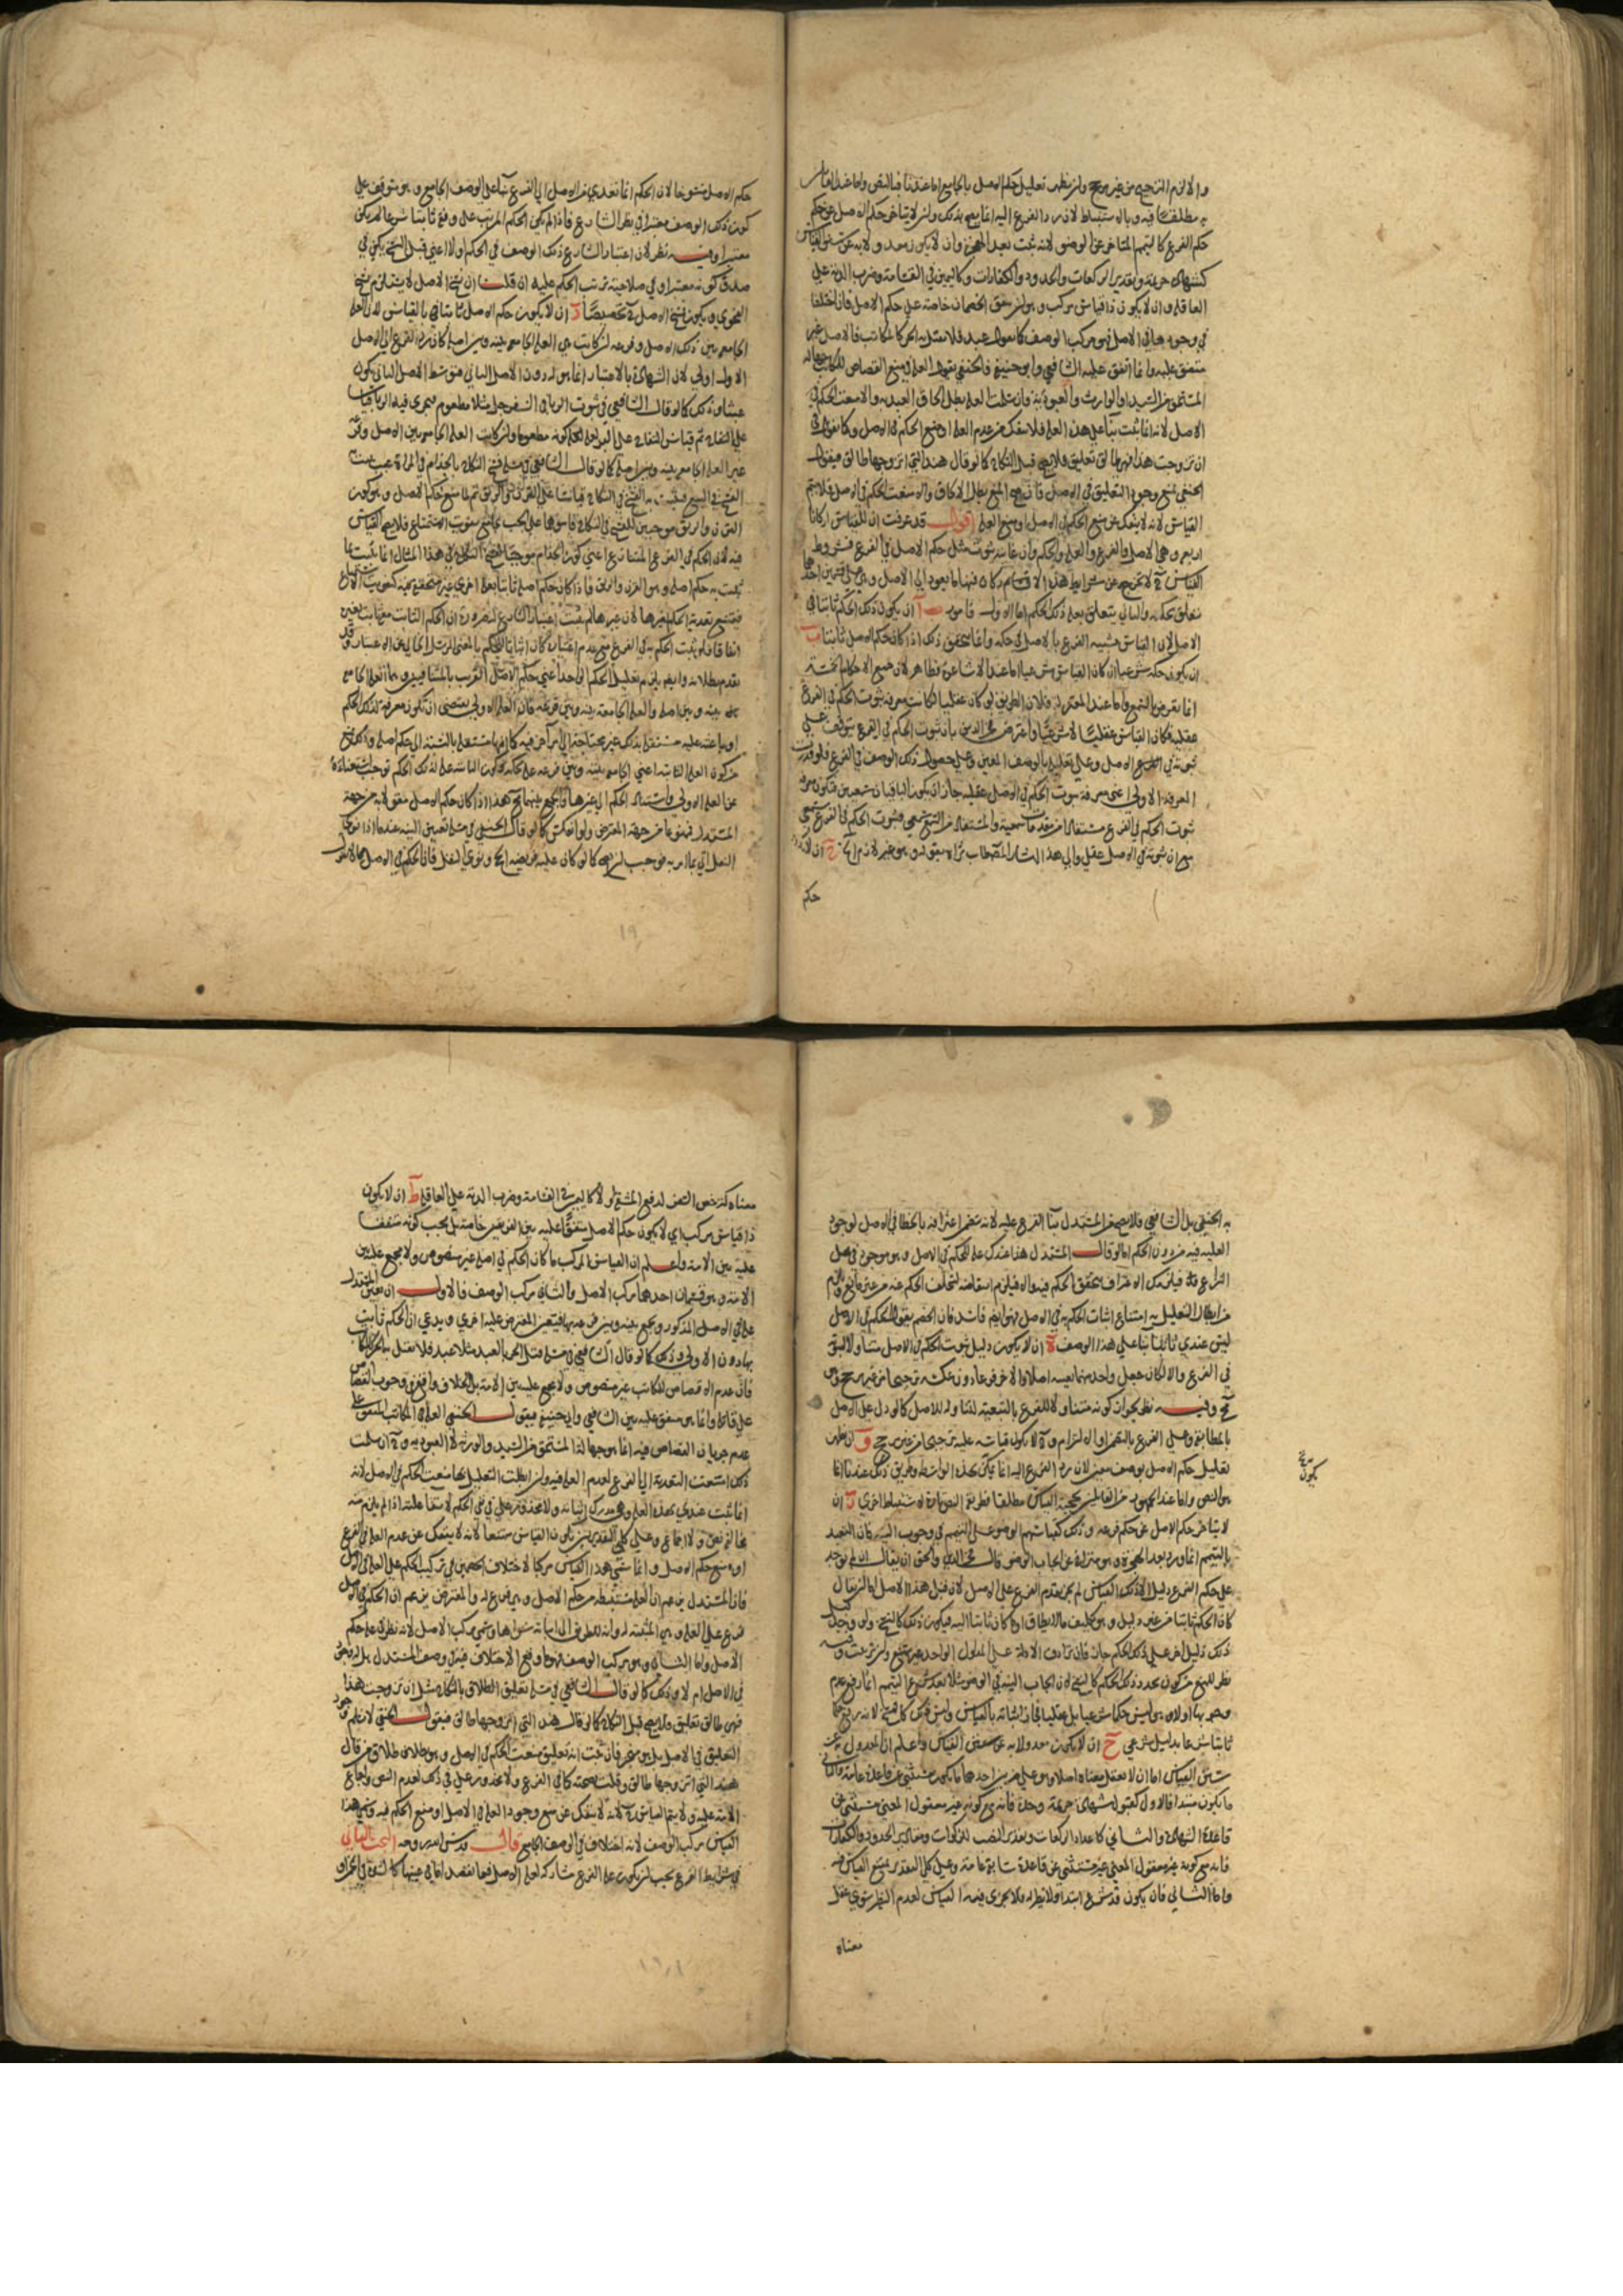 والا لزم الترجيح من غير مرجح وان يظهر تعليل حكم الاصل بالجامع اما عندنا فبالنص واما عند القايس
به مطلقا فبه وبالاستنباط لان رد الفرع اليه انما يصح بذلك وان لا يتاخر حكم الاصل عن حكم
حكم الفرع كالتيمم المتاخر عن الوضوء لانه ثبت بعد الهجرة وان لا يكون معدولا به عن سنن القياس
كشهادة خزيمة وتقدير الركعات والحدود والكفارات وكاليمين في القسامة وضرب الدية على
العاقلة وان لا يكون ذا قياس مركب وهو ان يتفق الخصمان خاصة على حكم الاصل فان اختلفا
في وجودها في الاصل فهو مركب الوصف كما نقول عبد فلا يقتل به الحر كالمكاتب فالاصل غير
متفق عليه وانما اتفق عليه الشافعي وابو حنيفة فالحنفي يقول العلة في منع القصاص للمكاتب جهالة
المستحق من السيد او الوارث والعبودية فان سلمت العلة بطل الحاق العبد به والا منعت الحكم في
الاصل لانه انما ثبت بناء على هذه العلة فلا ينفك من عدم العلة او منع الحكم في الاصل وكما نقول في
ان تزوجت هذا فهي طالق تعليق فلا يصح قبل النكاح كما لو قال هند التي اتزوجها طالق فيقول
الحنفي بمنع وجود التعليق في الاصل فان صح المنع بطل الالحاق والا منعت الحكم في الاصل فلا يتم
القياس لانه لا ينفك عن منع الحكم في الاصل او منع العلة اقول قد عرفت ان للقياس اركانا
اربعة وهي الاصل والفرع والعلة والحكم وان غايته ثبوت مثل حكم الاصل في الفرع فشروط
القياس لا تخرج عن شرايط هذه الاركان فمنها ما يعود الى الاصل وهي على قسمين احدهما
متعلق بحكمه والثاني يتعلق بعلة ذلك الحكم اما الاول فامور آ ان يكون ذلك الحكم ثابتا في
الاصل لان القياس تشبيه الفرع بالاصل في حكمه وانما يتحقق ذلك اذا كان حكم الاصل ثابتا ب
ان يكون حكمه شرعيا ان كان القياس شرعيا اما عند الاشاعرة فظاهر لان جميع الاحكام
انما تعرف بالشرع واما عند المعتزلة فلان الطريق لو كان عقليا لكانت معرفة ثبوت الحكم في الفرع
عقلية فكان القياس عقليا لا شرعيا واعترض فخر الدين بان ثبوت الحكم في الفرع يتوقف على
ثبوته في الاصل وعلى تعليله بالوصف المعين وعلى حصول ذلك الوصف في الفرع فلو قدرت
المعرفة الاولى اعني معرفة ثبوت الحكم في الاصل عقلية جاز ان يكون الباقيان سمعيين فتكون معرفة
ثبوت الحكم في الفرع مستفادة من مقدمات سمعية والمستفاد من السمعي سمعي فثبوت الحكم في الفرع سمعي
مع ان ثبوته في الاصل عقلي والى هذا اشار المصطاب ثراه بقوله وهو غير لازم ج ان لا يكون
حكم
حكم الاصل منسوخا لان الحكم انما تعدى من الاصل الى الفرع بناء على الوصف الجامع وهو يتوقف على
كون ذلك الوصف معتبرا في نظر الشارع فاذا لم يكن الحكم المرتب على وفقه ثابتا شرعا لم يكن
معتبرا وفيه نظر لان اعتبار الشارع ذلك الوصف في الحكم اولا اعني قبل النسخ يكفي في
صدق كونه معتبرا وفي صلاحيته ترتب الحكم عليه ان قلت ان نسخ الاصل لا يستلزم نسخ
الفحوى ويكون نسخ الاصل تخصيصا د ان لا يكون حكم الاصل ثابتا في بالقياس لان العلة
الجامعة بين ذلك الاصل وفرعه ان كانت هي العلة الجامعة بينه وبين اصله كان رد الفرع الى الاصل
الاول اولى لان الشهادة بالاعتبار انما هو له دون الاصل الثاني فتوسط الاصل الثاني يكون
عبثا وذلك كما لو قال الشافعي في ثبوت الربا في السفرجل مثلا مطعوم فيجري فيه الربا قياسا
على التفاح ثم قياس التفاح على البر بعلة كونه مطعوما وان كانت العلة الجامعة بين الاصل وفرعه
غير العلة الجامعة بينه وبين اصله كما لو قال الشافعي في مسئلة فسخ النكاح بالجذام في المراة عيب يثبت به
الفسخ في البيع فيثبت به الفسخ في النكاح قياسا على القرن والرتق ثم لما منع حكم الاصل وهو كون
القرن والرتق موجبين للفسخ في النكاح قاسها على الجب بجامع تفويت الاستمتاع فلا يصح القياس
فيه لان الحكم في الفرع المتنازع اعني كون الجذام موجبا لفسخ النكاح في هذا المثال انما يثبت بما
يثبت به حكم اصله وهو القرن والرتق فاذا كان حكم اصله ثابتا بعلة اخرى غير متحققة فيه
فيمتنع تعدية الحكم بغيرها لان غيرها لم يثبت اعتبار الشارع له ضرورة ان الحكم الثابت معها ثابت بغيره
اتفاقا فلو ثبت الحكم به في الفرع مع عدم اعتباره كان اثباتا للحكم بالمعنى المرسل الخالي عن الاعتبار وقد
تقدم بطلانه وايضا يلزم تعليل الحكم الواحد اعني حكم الاصل القريب بالمتنافيين وهما العلة الجامعة
بينه وبين اصله والعلة الجامعة بينه وبين فرعه فان العلة الاولى تقتضي ان تكون معرفة لذلك الحكم
او باعثة عليه مستقلة بذلك غير محتاجة الى امر اخر فيه
من كون العلة الثانية اعني الجامعة بينه وبين فرعه علة لحكمه وكون الثانية علة لذلك الحكم توجب استغناءه
عن العلة الاولى واستناد الحكم الى غيرها فالجمع بينهما هذا اذا كان حكم الاصل مقولا به من جهة
المستدل ممنوعا من جهة المعترض ولو انعكس كما لو قال الحنفي في مسئلة تعيين النية عندما اذا نوى
النفل اتى بما امر به فوجب ان يصح كما لو كان عليه فريضة الحج ونوى النفل فان الحكم في الاصل مما لا يقول
به الحنفي بل الشافعي فلا يصح من المستدل بناء الفرع عليه لانه يتضمن اعترافه بالخطا في الاصل لوجود
العلة فيه من دون الحكم اما لو قال المستدل هذا عندك علة للحكم في الاصل وهو موجود في محل
النزاع فيلزمك الاعتراف بتحقق الحكم فيه والا فيلزم انتقاضه لتخلف الحكم عنه من غير مانع ويلزم
من ابطال التعليل به امتناع اثبات الحكم به في الاصل فهو ايضا فاسد فان الخصم يقول الحكم في الاصل
ليس عندي ثابتا بناء على هذا الوصف ه ان لا يكون دليل ثبوت الحكم في الاصل متناولا لثبوته
في الفرع والا لكان جعل واحد منهما بعينه اصلا والاخر فرعا دون عكسه ترجيحا من غير مرجح وهو
مح وفيه نظر لجواز كونه متناولا للفرع بالتبعية لتناوله للاصل كما لو دل على الاصل
بالمطابقة وعلى الفرع بالتضمن او الالتزام و لا يكون قياسه عليه ترجيحا من غير مرجح و ان يظهر
تعليل حكم الاصل بوصف معين لان رد الفرع اليه انما يمكن بهذه الواسطة وطريق ذلك عندنا انما
هو النص واما عند الجمهور من القايلين بحجية القياس مطلقا فطريقه النص تارة والاستنباط اخرى ز ان
لا يتاخر حكم الاصل عن حكم فرعه وذلك كقياسهم الوضوء على التيمم في وجوب النية فان التعبد
بالتيمم انما ورد بعد الهجرة وهو متراخ عن ايجاب الوضوء قال فخر الدين والحق ان يقال ان لم يوجد
على حكم الفرع دليل الا ذلك القياس لم يجز تقدم الفرع على الاصل لان قبل هذا الاصل اما ان يقال
كان الحكم ثابتا من غير دليل وهو تكليف ما لا يطاق او ما كان ثابتا البتة فيكون ذلك كالنسخ وان وجد قبله
ذلك دليل اخر على ذلك الحكم جاز فان ترادف الادلة على المدلول الواحد غير ممتنع وان ترتبت وفيه
نظر للمنع من كون تجدد ذلك الحكم كالنسخ فان ايجاب النية في الوضوء مثلا بعد شرع التيمم انما رفع عدم
وجوبها اولا وهو ليس حكما شرعيا بل عقليا فجاز اثباته بالقياس وليس كل نسخ لانه يرفع حكما
ثابتا شرعا بدليل شرعي ح ان لا يكون معدولا به عن سنن القياس واعلم ان المعدول به عن
سنن القياس اما ان لا يعقل معناه اصلا وهو على ضربين احدهما ما يكون مستثنى عن قاعدة عامة والثاني
ما يكون مبتدا فالاول كقبول شهادة خزيمة وحده فانه مع كونه غير معقول المعنى مستثنى من
قاعدة الشهادة والثاني كاعداد الركعات وتقدير النصب للزكوات ومقادير الحدود والكفارات
فانه مع كونه غير معقول المعنى غير مستثنى عن قاعدة سابقة عامة وعلى كلي التقدير يمتنع القياس فيه
واما الثاني فان يكون قد شرع ابتدا ولا نظير له ولا يجري فيه القياس لعدم النظير سوى عقل
معناه
يكون
معناه كرخص السفر لدفع المشقة او لا كاليمين في القسامة وضرب الدية على العاقلة ط ان لا يكون
ذا قياس مركب اي لا يكون حكم الاصل متفقا عليه بين الفريقين خاصة بل يجب كونه متفقا
عليه بين الامة واعلم ان القياس المركب ما كان الحكم في اصله غير منصوص ولا مجمع عليه بين
الامة وهو قسمان احدهما مركب الاصل والثاني مركب الوصف فالاول ان يعين المستدل
علة في الاصل المذكور ويجمع بينه وبين فرعه بها فيعين المعترض علة اخرى ويدعي ان الحكم ثابت
بها دون الاولى وذلك كما لو قال الشافعي في مسئلة قتل الحر بالعبد مثلا عبد فلا يقتل به الحر كالمكاتب
فان عدم القصاص للمكاتب غير منصوص ولا مجمع عليه بين الامة بل الخلاف واقع في وجوب القصاص
على قاتله وانما هو متفق عليه بين الشافعي وابي حنيفة فيقول الحنفي العلة في المكاتب المتفق على
عدم جريان القصاص فيه انما هو جهالة المستحق من السيد والورثة لا العبودية و ان سلمت
ذلك امتنعت التعدية الى الفرع لعدم العلة فيه وان ابطلت التعليل بها منعت الحكم في الاصل لانه
انما ثبت عندي بهذه العلة وهي مدرك اثباته ولا محذور علي في نفي الحكم لانتفاء علته اذا لم يلزم منه
مخالفة نص ولا اجماع وعلى كلي التقديرين يكون القياس ممتنعا لانه لا ينفك عن عدم العلة في الفرع
او منع حكم الاصل وانما سمي هذا القياس مركبا لاختلاف الخصمين في تركيب الحكم على العلة في الاصل
فان المستدل يزعم ان العلة مستنبطة من حكم الاصل وهي فرع له والمعترض يزعم ان الحكم في الاصل
فرع على العلة وهي المثبتة له وانه لا طريق الى اثباته سواها وسمي مركب الاصل لانه نظر في علة حكم
الاصل واما الثاني وهو مركب الوصف فهو ما وقع الاختلاف فيه في وصف المستدل هل له وجود
في الاصل ام لا وذلك كما لو قال الشافعي في مسئلة تعليق الطلاق بالنكاح مثل ان تزوجت هندا
فهي طالق تعليق فلا يصح قبل النكاح كما لو قال هند التي اتزوجها طالق فيقول الحنفي لا نسلم وجود
التعليق في الاصل بل هو تنجيز فان ثبت انه تعليق منعت الحكم في الاصل وهو طلاق من قال
هند التي اتزوجها طالق وقلت بصحته كما في الفرع ولا محذور علي في ذلك لعدم النص واجماع
الامة عليه ولا يتم القياس لانه لا ينفك عن منع وجود العلة في الاصل او منع الحكم فيه وسمي هذا
القياس مركب الوصف لانه اختلاف في الوصف الجامع قال قدس الله روحه البحث الثاني
في شرايط الفرع يجب ان يكون علة الفرع مشاركة لعلة الاصل فيما يقصد اما في عينها كالشدة في الخمر او